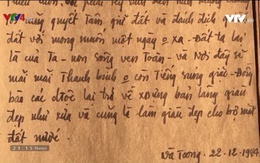 VTV4
VTV
quyết tâm giữ đất và đánh địch
đất với mong muốn một ngày @ xa - Đất lại
là của Ta - non sông vẹn toàn - và Nơi đây sẽ
mãi mãi Thanh bình @ còn Tiếng súng
bào các được lại trở về xây dựng bản làng
đẹp như xưa và cùng làm giàu đẹp cho bộ mặt
đất nước.
22-12-1984
21:15